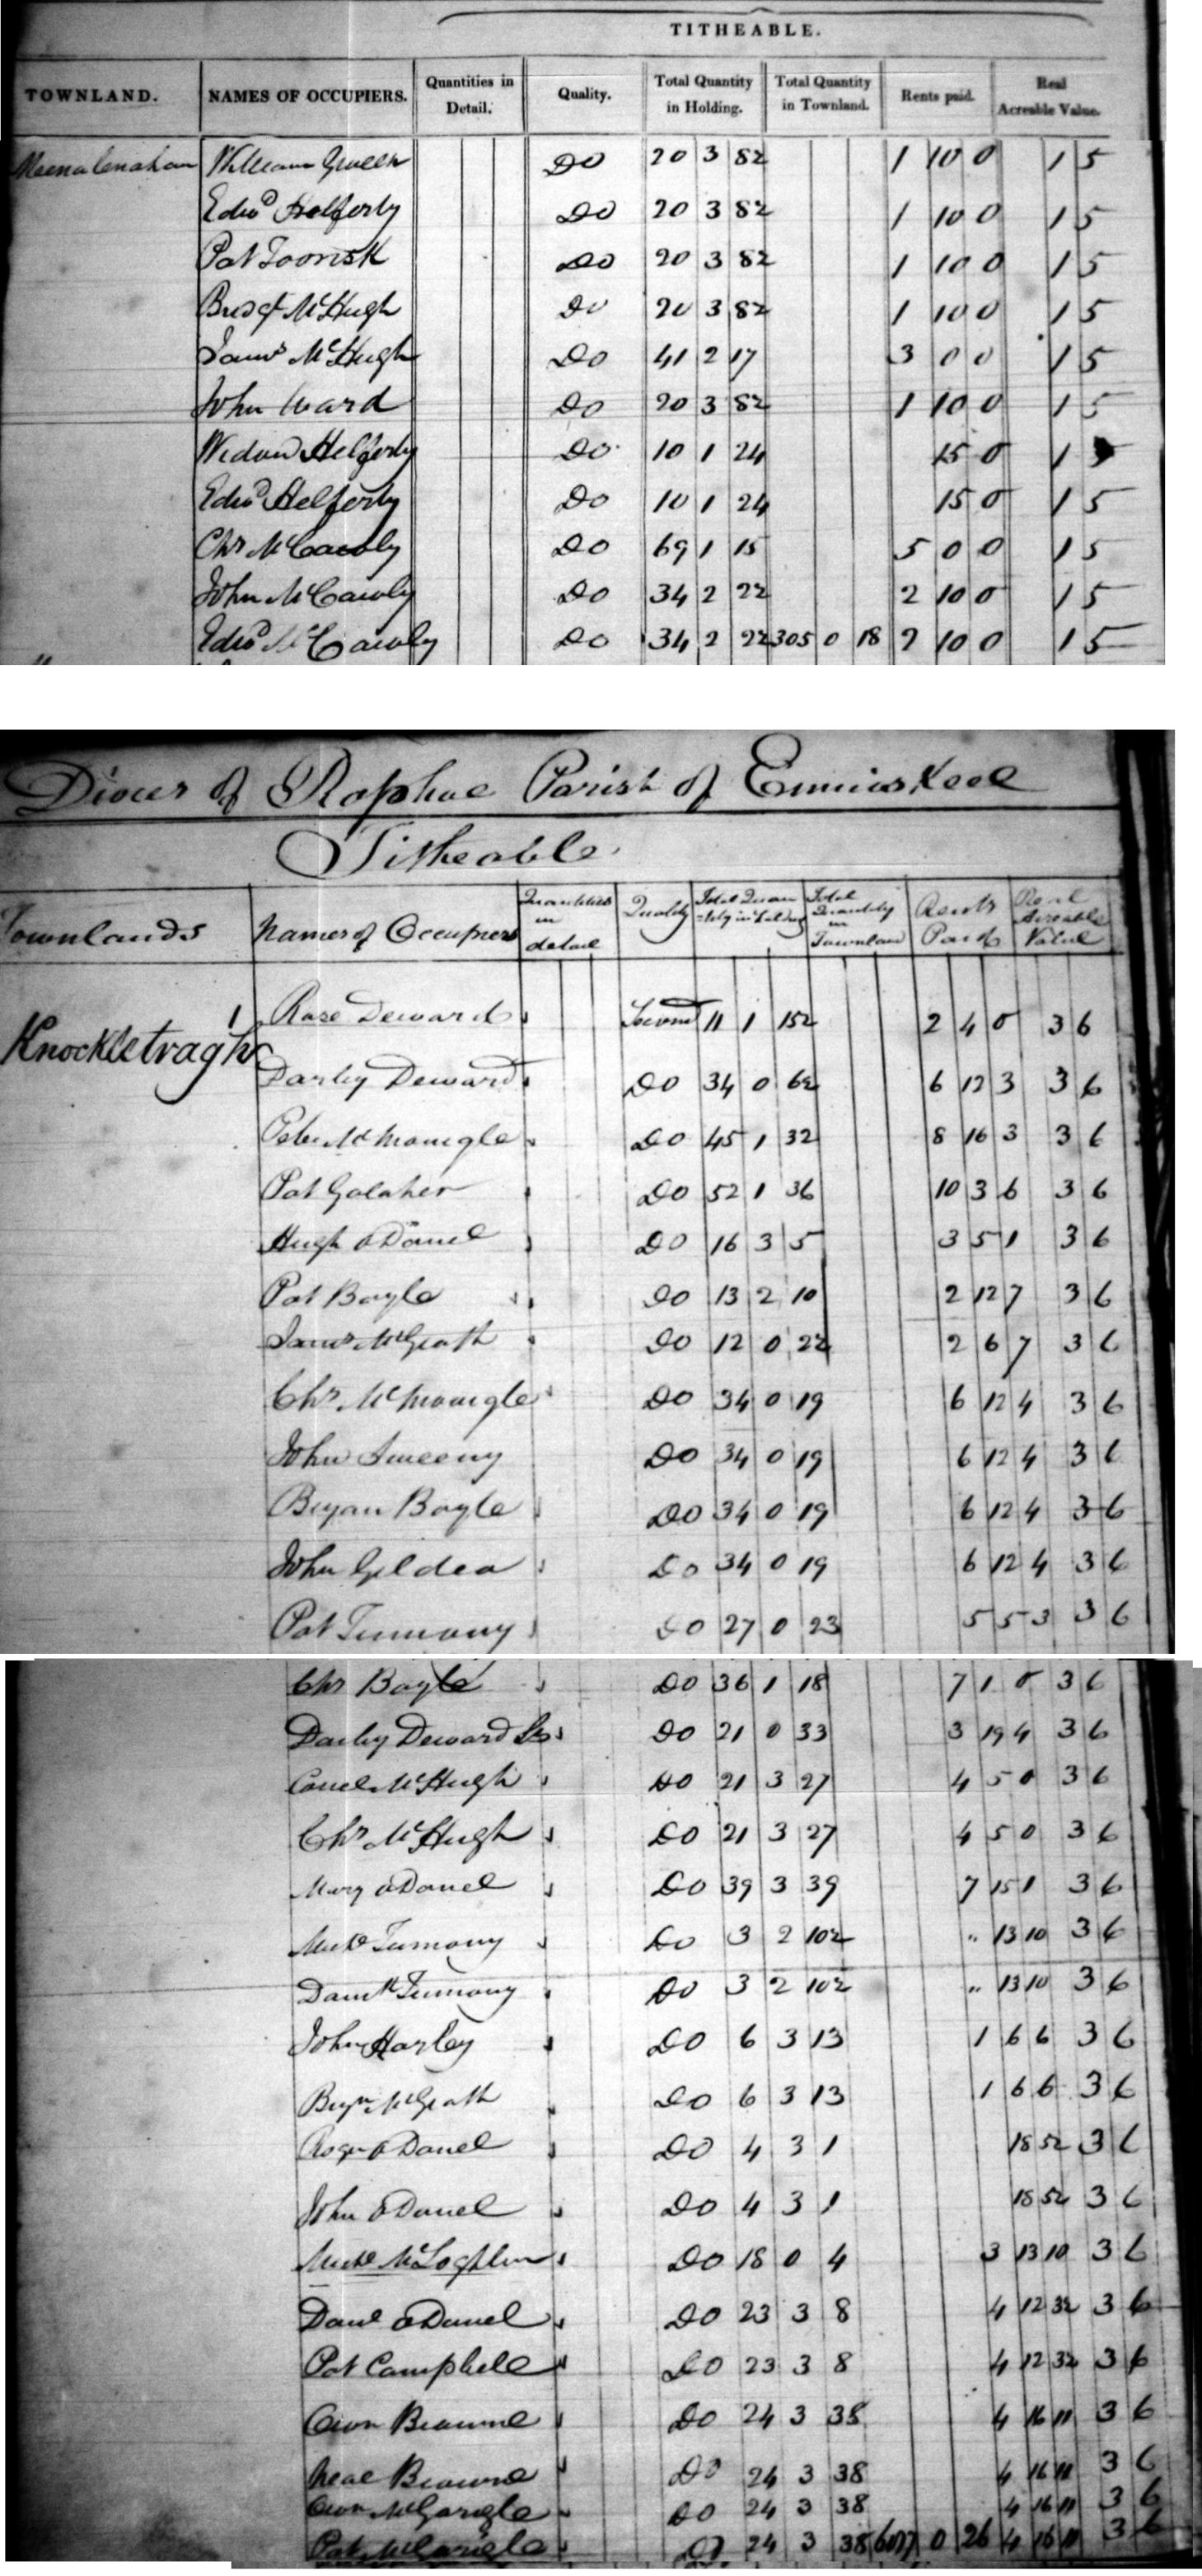 TITHEABLE.
TOWNLAND. NAMES OF OCCUPIERS. Quantities in Detail. Quality. Total Quantity in Holding. Total Quantity in Townland. Rents paid. Real Acreable Value.
Meenalenahan William Green Do 20 3 8½ 1 10 0 1 5
Edwd Helferty Do 20 3 8½ 1 10 0 1 5
Pat Toorisk Do 20 3 8½ 1 10 0 1 5
Bridgt McHugh Do 20 3 8½ 1 10 0 1 5
Jams McHugh Do 41 2 17 3 0 0 1 5
John Ward Do 20 3 8½ 1 10 0 1 5
Widow Helferty Do 10 1 24 15 0 1 5
Edwd Helferty Do 10 1 24 15 0 1 5
Chs McCawly Do 69 1 15 5 0 0 1 5
John McCawly Do 34 2 22 2 10 0 1 5
Edwd McCawly Do 34 2 22 305 0 18 2 10 0 1 5
Dioces of Raphoe Parish of Enniskeel
Titheable
Townlands Names of Occupiers Quantities in detail Quality Total Quantity in Holding Total Quantity in Townland Rents Paid Real Acreable Value
Knockletragh 1 Rose Deward Second 11 1 15½ 2 4 0 3 6
Darby Deward Do 34 0 6½ 6 12 3 3 6
Peter McMonigle Do 45 1 32 8 16 3 3 6
Pat Galaher Do 52 1 36 10 3 6 3 6
Hugh ODonel Do 16 3 5 3 5 1 3 6
Pat Boyle Do 13 2 10 2 12 7 3 6
Jams McGrath Do 12 0 22 2 6 7 3 6
Chs McMonigle Do 34 0 19 6 12 4 3 6
John Sweeny Do 34 0 19 6 12 4 3 6
Bryan Boyle Do 34 0 19 6 12 4 3 6
John Gildea Do 34 0 19 6 12 4 3 6
Pat Tumony Do 27 0 23 5 5 3 3 6
Chs Boyle Do 36 1 18 7 1 0 3 6
Darby Deward Do 21 0 33 3 19 4 3 6
Conel McHugh Do 21 3 27 4 5 0 3 6
Chs McHugh Do 21 3 27 4 5 0 3 6
Mary ODonel Do 39 3 39 7 15 1 3 6
Michl Tumony Do 3 2 10½ " 13 10 3 6
Danll Tumony Do 3 2 10½ " 13 10 3 6
John Harley Do 6 3 13 1 6 6 3 6
Bryn McGrath Do 6 3 13 1 6 6 3 6
Roger ODonel Do 4 3 1 18 5½ 3 6
John ODonel Do 4 3 1 18 5½ 3 6
Michl McLoghlin Do 18 0 4 3 13 10 3 6
Danl ODonel Do 23 3 8 4 12 3½ 3 6
Pat Campbell Do 23 3 8 4 12 3½ 3 6
Owen Browne Do 24 3 38 4 16 11 3 6
Neal Browne Do 24 3 38 4 16 11 3 6
Owen McGarigle Do 24 3 38 4 16 11 3 6
Pat McGarigle Do 24 3 38 0 26 4 16 11 3 6